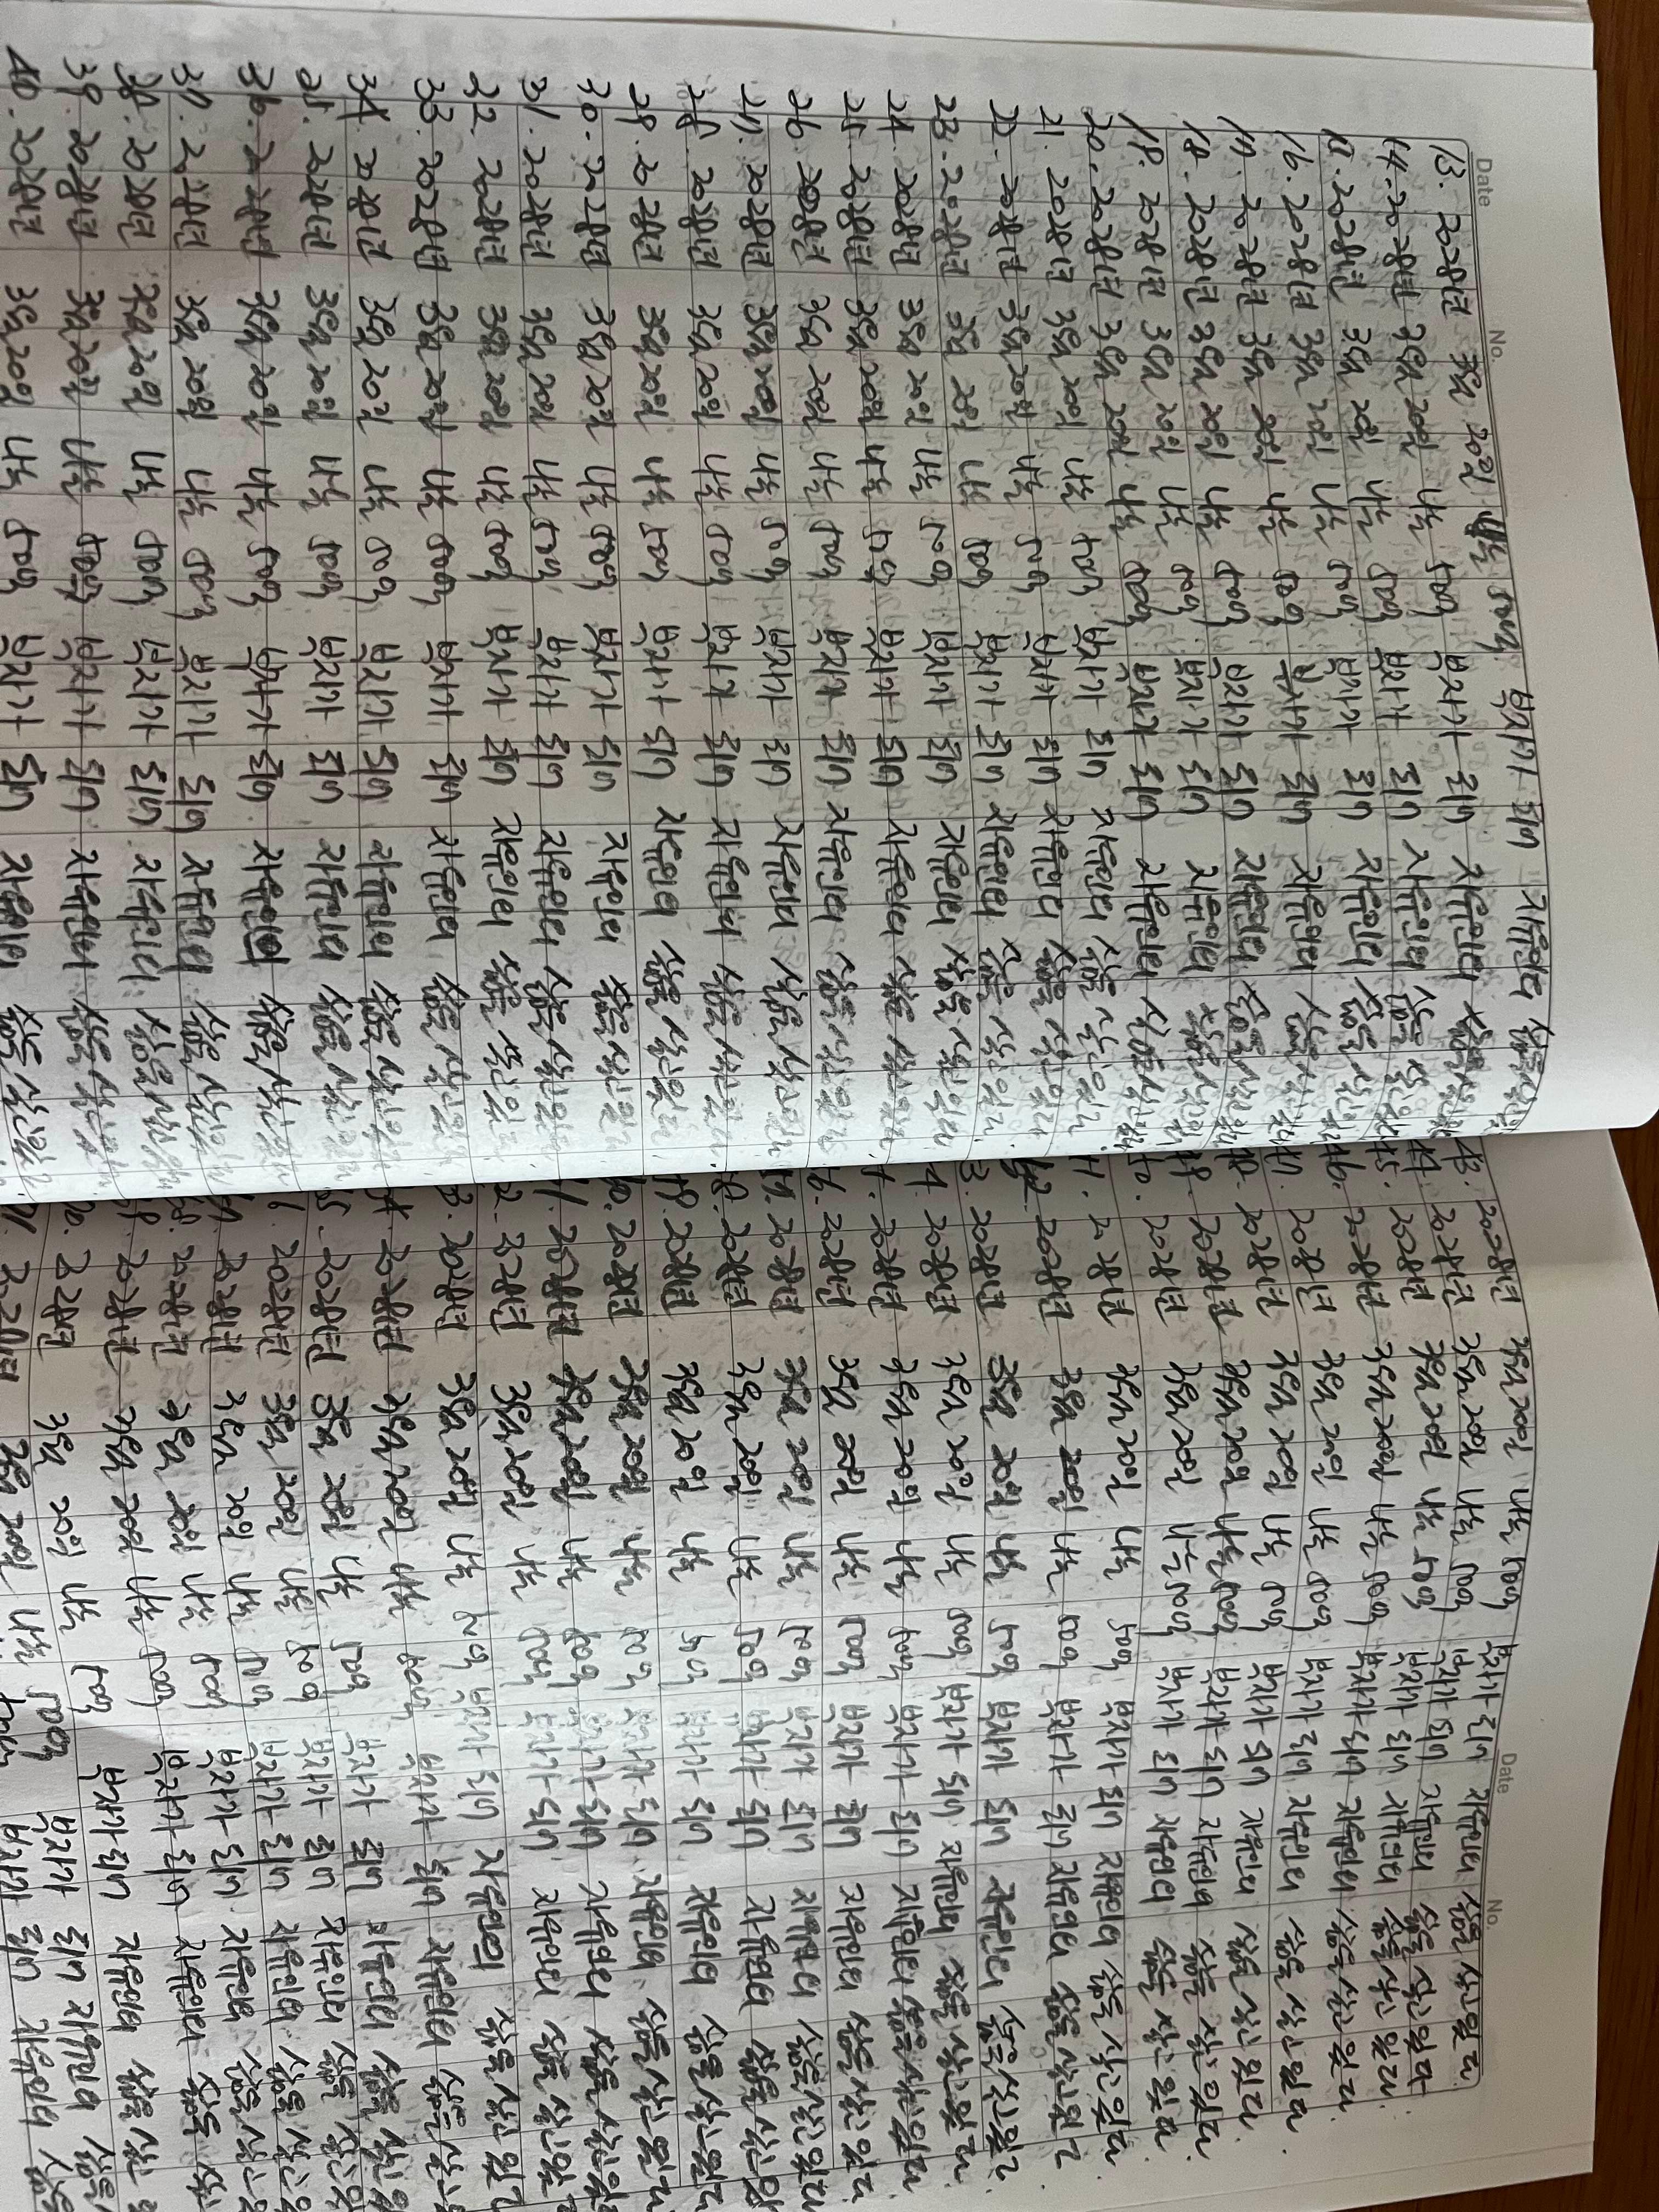 Date No.
13. 2028년 3월 20일 나는 500억 부자가 되어 자유인의 삶을 살고 있다
14. 2028년 3월 20일 나는 500억 부자가 되어 자유인의 삶을 살고 있다
15. 2028년 3월 20일 나는 500억 부자가 되어 자유인의 삶을 살고 있다
16. 2028년 3월 20일 나는 500억 부자가 되어 자유인의 삶을 살고 있다
17. 2028년 3월 20일 나는 500억 부자가 되어 자유인의 삶을 살고 있다
18. 2028년 3월 20일 나는 500억 부자가 되어 자유인의 삶을 살고 있다
19. 2028년 3월 20일 나는 500억 부자가 되어 자유인의 삶을 살고 있다
20. 2028년 3월 20일 나는 500억 부자가 되어 자유인의 삶을 살고 있다.
21. 2028년 3월 20일 나는 500억 부자가 되어 자유인의 삶을 살고 있다
22. 2028년 3월 20일 나는 500억 부자가 되어 자유인의 삶을 살고 있다
23. 2028년 3월 20일 나는 500억 부자가 되어 자유인의 삶을 살고 있다.
24. 2028년 3월 20일 나는 500억 부자가 되어 자유인의 삶을 살고 있다
25. 2028년 3월 20일 나는 500억 부자가 되어 자유인의 삶을 살고 있다
26. 2028년 3월 20일 나는 500억 부자가 되어 자유인의 삶을 살고 있다
27. 2028년 3월 20일 나는 500억 부자가 되어 자유인의 삶을 살고 있다
28. 2028년 3월 20일 나는 500억 부자가 되어 자유인의 삶을 살고 있다.
29. 2028년 3월 20일 나는 500억 부자가 되어 자유인의 삶을 살고 있다
30. 2028년 3월 20일 나는 500억 부자가 되어 자유인의 삶을 살고 있다
31. 2028년 3월 20일 나는 500억 부자가 되어 자유인의 삶을 살고 있다
32. 2028년 3월 20일 나는 500억 부자가 되어 자유인의 삶을 살고 있다
33. 2028년 3월 20일 나는 500억 부자가 되어 자유인의 삶을 살고 있다
34. 2028년 3월 20일 나는 500억 부자가 되어 자유인의 삶을 살고 있다
25. 2028년 3월 20일 나는 500억 부자가 되어 자유인의 삶을 살고 있다
36. 2028년 3월 20일 나는 500억 부자가 되어 자유인의 삶을 살고 있다
37. 2028년 3월 20일 나는 500억 부자가 되어 자유인의 삶을 살고 있다
38. 2028년 3월 20일 나는 500억 부자가 되어 자유인의 삶을 살고
39. 2028년 3월 20일 나는 500억 부자가 되어 자유인의 삶을 살고
40. 2028년 3월 20일 나는 500억 부자가 되어 자유인의 삶을 살고 있다
Date No.
3. 2028년 3월 20일 나는 500억 부자가 되어 자유인의 삶을 살고 있다
44. 2028년 3월 20일 나는 500억 부자가 되어 자유인의 삶을 살고 있다
45. 2028년 3월 20일 나는 500억 부자가 되어 자유인의 삶을 살고 있다.
46. 2028년 3월 20일 나는 500억 부자가 되어 자유인의 삶을 살고 있다.
47. 2028년 3월 20일 나는 500억 부자가 되어 자유인의 삶을 살고 있다
48. 2028년 3월 20일 나는 500억 부자가 되어 자유인의 삶을 살고 있다.
9. 2028년 3월 20일 나는 500억 부자가 되어 자유인의 삶을 살고 있다.
0. 2028년 3월 20일 나는 500억 부자가 되어 자유인의 삶을 살고 있다
1. 2028년 3월 20일 나는 500억 부자가 되어 자유인의 삶을 살고 있다.
52. 2028년 3월 20일 나는 500억 부자가 되어 자유인의 삶을 살고 있다
3. 2028년 3월 20일 나는 500억 부자가 되어 자유인의 삶을 살고 있다
4. 2028년 3월 20일 나는 500억 부자가 되어 자유인의 삶을 살고 있다.
2028년 3월 20일 나는 500억 부자가 되어 자유인의 삶을 살고 있다
6. 2028년 3월 20일 나는 500억 부자가 되어 자유인의 삶을 살고 있다
57. 2028년 3월 20일 나는 500억 부자가 되어 자유인의 삶을 살고 있다
8. 2028년 3월 20일 나는 500억 부자가 되어 자유인의 삶을 살고 있
9. 2028년 3월 20일 나는 500억 부자가 되어 자유인의 삶을 살고 있다
0. 2028년 3월 20일 나는 500억 부자가 되어 자유인의 삶을 살고 있다
1. 2028년 3월 20일 나는 500억 부자가 되어 자유인의 삶을 살고 있
2. 2028년 3월 20일 나는 500억 부자가 되어 자유인의 삶을 살고 있다
3. 2028년 3월 20일 나는 500억 부자가 되어 자유인의 삶을 살고 있
4. 2028년 3월 20일 나는 500억 부자가 되어 자유인의 삶을 살고
5. 2028년 3월 20일 나는 500억 부자가 되어 자유인의 삶을 살고 있
6. 2028년 3월 20일 나는 500억 부자가 되어 자유인의 삶을 살고 있
7. 2028년 3월 20일 나는 500억 부자가 되어 자유인의 삶을 살고
68. 2028년 3월 20일 나는 500억 부자가 되어 자유인의 삶을
9. 2028년 3월 20일 나는 500억 부자가 되어 자유인의 삶을 살고
70. 2028년 3월 20일 나는 500억 부자가 되어 자유인의 삶을
71. 2028년 3월 20일 나는 500억 부자가 되어 자유인의 삶을